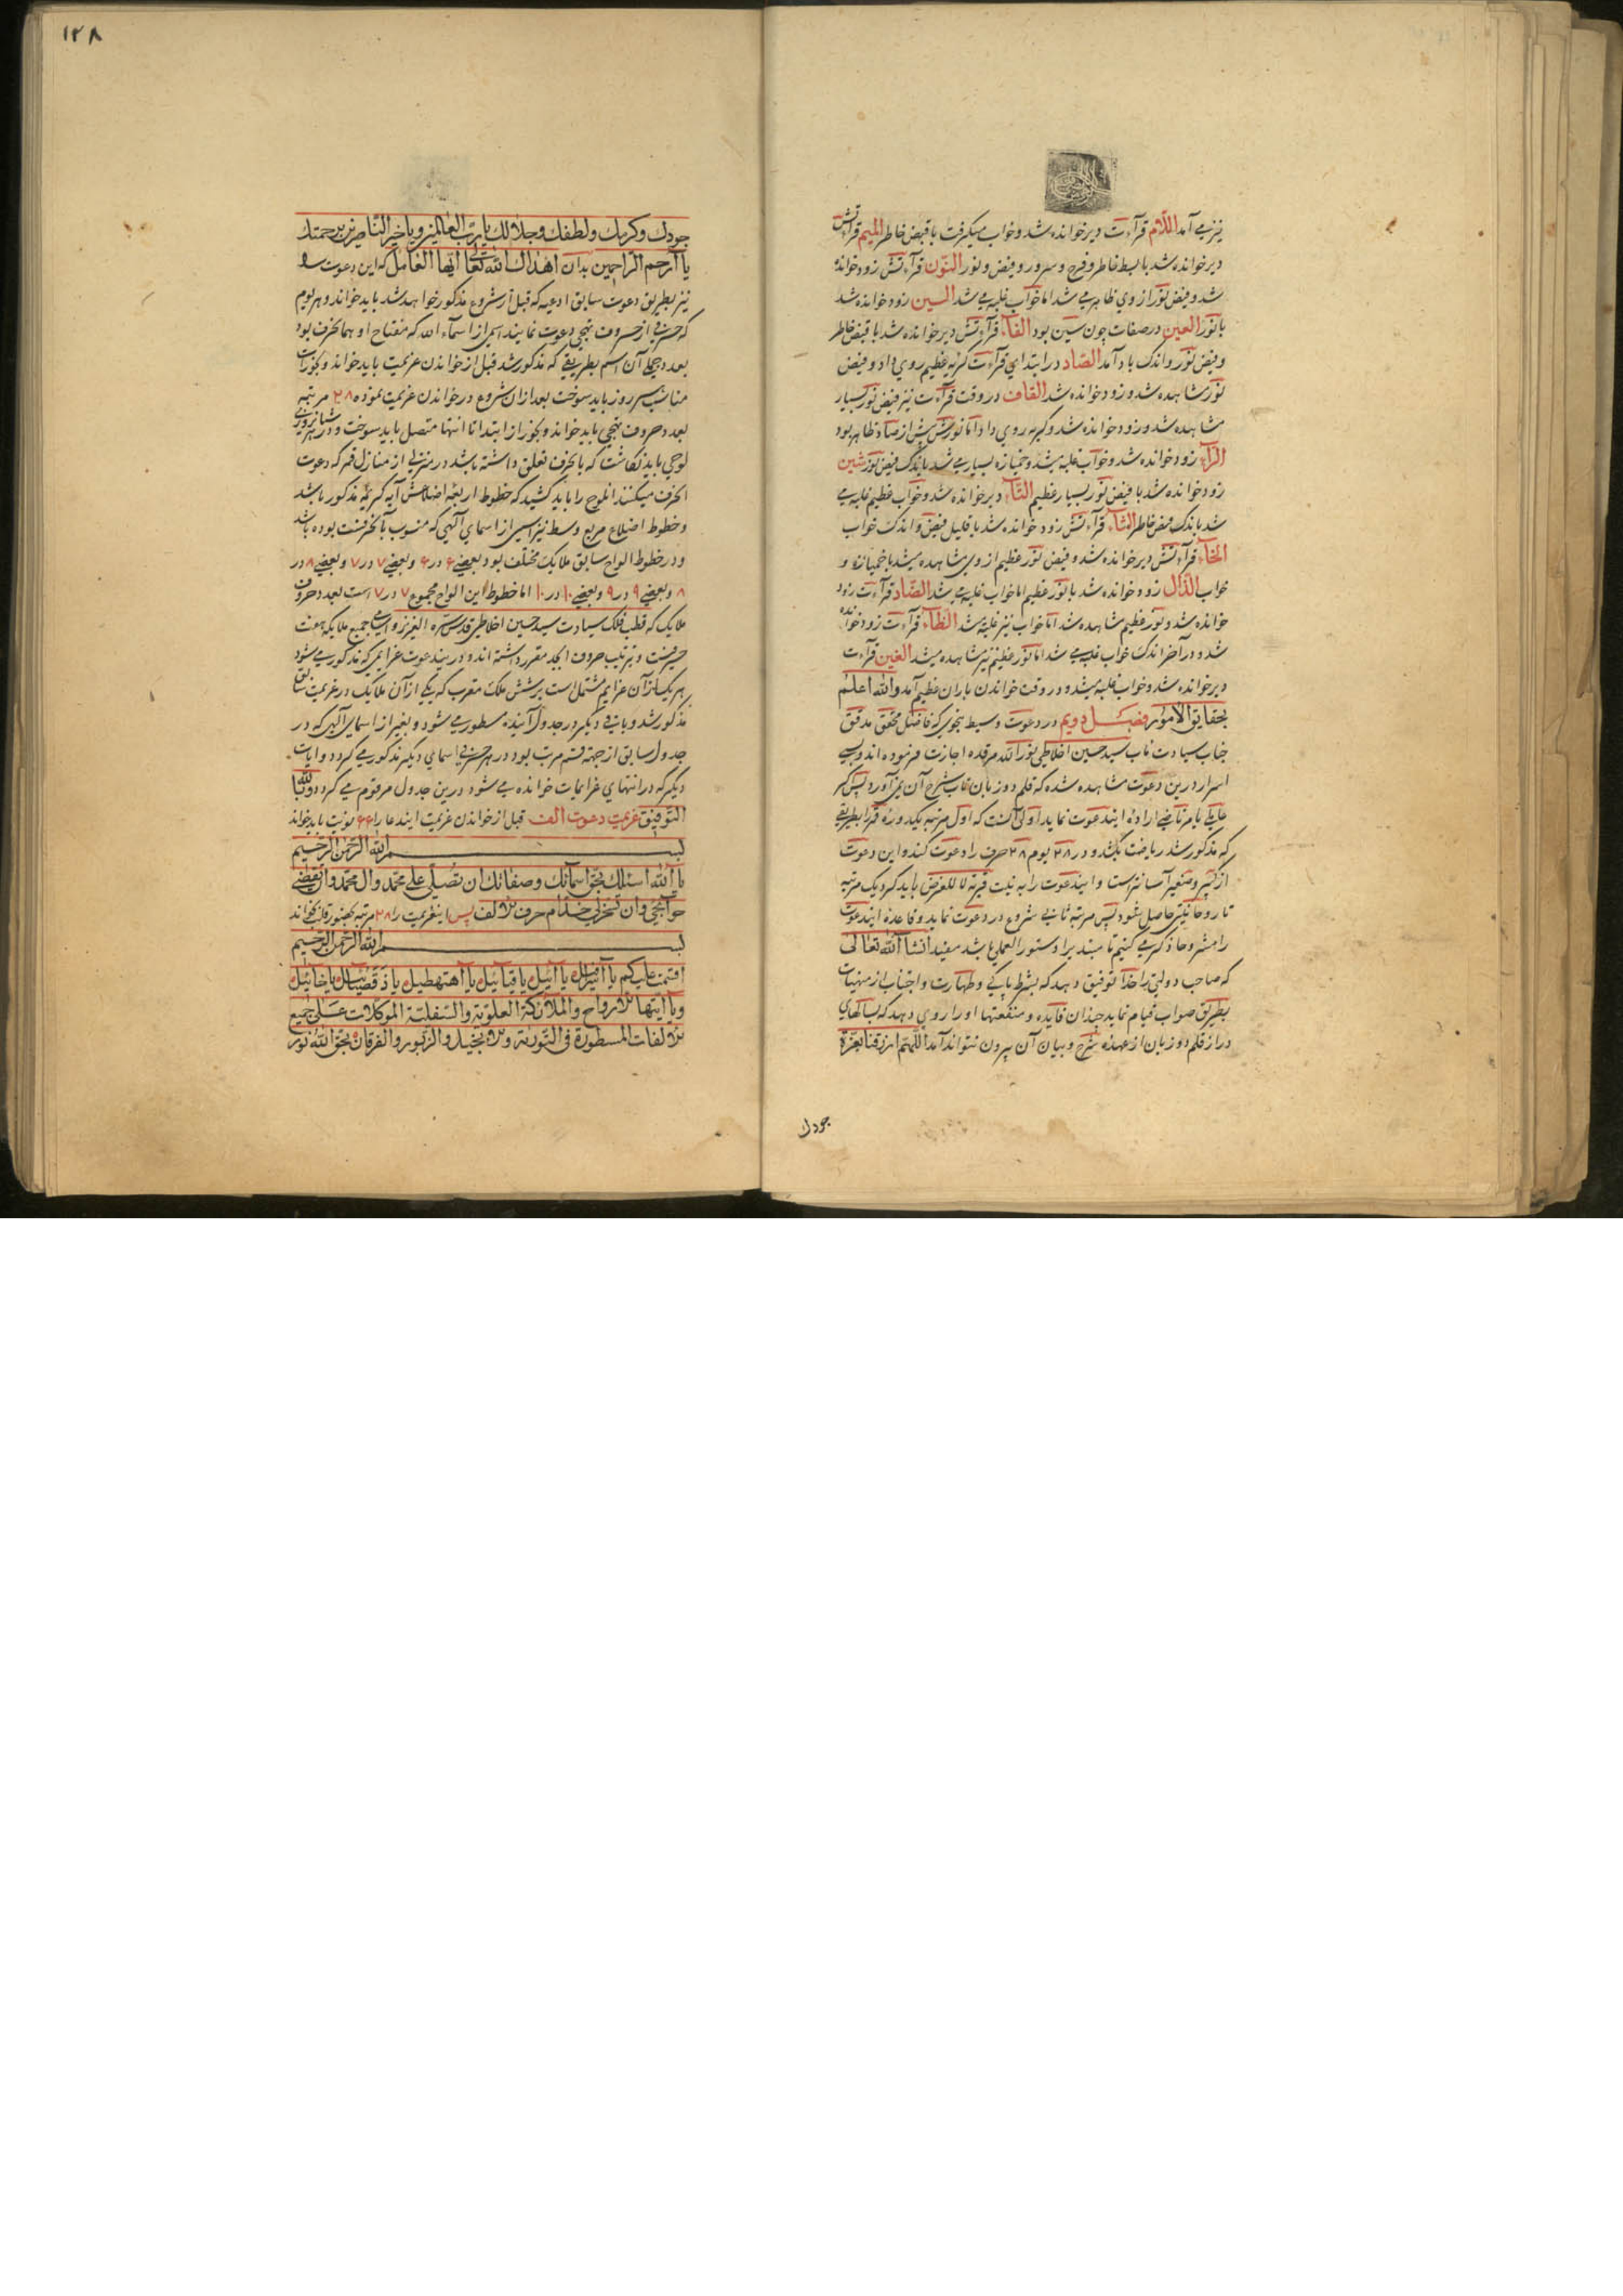 نیز می آمد اللّام قرآءت دیر خوانده شد و خواب میگرفت با قبض خاطر المیم قرآءتش
دیر خوانده شد با بسط خاطر و فرح و سرور و فیض و نور النّون قرآءتش زود خوانده
شد و فیض نور از وی ظاهر می شد اما خواب غلبه می شد السین زود خوانده شد
با نور العین در صفات چون سین بود الفآء قرآءتش دیر خوانده شد با قبض خاطر
و فیض نور و اندک باد آمد الصّاد در ابتدای قرآءت گریه عظیم روی داد و فیض
نور مشاهده شد و زود خوانده شد القاف در وقت قرآءت نیز فیض نور بسیار
مشاهده شد و زود خوانده شد و گریه روی داد اما نورش بیش از صاد ظاهر بود
الرّآء زود خوانده شد و خواب غلبه میشد و خمیازه بسیار می شد باندک فیض نور شین
زود خوانده شد با فیض نور بسیار عظیم التّآء دیر خوانده شد و خواب عظیم غلبه می
شد باندک قبض خاطر الثآء قرآءتش زود خوانده شد با قلیل فیض و اندک خواب
الخآء قرآءتش دیر خوانده شد و فیض نور عظیم از وی مشاهده میشد با خمیازه و
خواب الذّال زود خوانده شد با نور عظیم اما خواب غلبه می شد الضّاد قرآءت زود
خوانده شد و نور عظیم مشاهده شد اما خواب نیز غلبه شد الظّآء قرآءت زود خوانده
شد و در آخر اندک خواب غلبه می شد اما نور عظیم نیز مشاهده میشد الغین قرآءت
دیر خوانده شد و خواب غلبه میشد و در وقت خواندن باران عظیم آمد والله اعلم
بحقایق الامور فصل دویم در دعوت وسیط بنحوی که فاضل محقق مدقق
جناب سیادت مآب سید حسین اخلاطی نور الله مرقده اجازت فرموده اند و بسی
اسرار درین دعوت مشاهده شده که قلم دو زبان تاب شرح آن نمی آورد پس اگر
عاملی یا مرتاضی ارادهٔ ایندعوت نماید اولی آنست که اول مرتبه یکدوره قمر بطریقی
که مذکور شد ریاضت بکشد و در ۲۸ یوم ۲۸ حرف را دعوت کند و این دعوت
از کبیر و صغیر آسانتر است و ایندعوت را به نیت قربة لا للغرض باید کرد یک مرتبه
تا روحانیتی حاصل شود پس مرتبه ثانی شروع در دعوت نماید و قاعدهٔ ایندعوت
را مشروحا ذکر می کنیم تا مبتدیرا دستور العملی باشد مفید انشآء الله تعالی
که صاحب دولتی را خدا توفیق دهد که بشرط پاکی و طهارت و اجتناب از منهیات
بطریق صواب قیام نماید چندان فایده و منفعتها او را روی دهد که بسالهای
دراز قلم دو زبان از عهده شرح و بیان آن بیرون نتواند آمد اللّهمّ ارزقنا بعزّة
جودك
۱۲۸
جودك وكرمك ولطفك وجلالك يا ربّ العالمين ويا خير النّاصرين برحمتك
يا أرحم الرّاحمين بدان اهداك الله تعالى ايّها العامل که این دعوت
نیز بطریق دعوت سابق ادعیه که قبل از شروع مذکور خواهد شد باید خواند و هر یوم
که حرفی از حروف تهجی دعوت نمایند اسمی از اسمآء الله که مفتاح او همانحرف بود
بعدد جملی آن اسم بطریقی که مذکور شد قبل از خواندن عزیمت باید خواند و بخورات
مناسب هر روز باید سوخت بعد از آن شروع در خواندن عزیمت نموده ۲۸ مرتبه
بعدد حروف تهجی باید خواند و بخور از ابتدا تا انتها متصل باید سوخت و در هر شبانروزی
لوحی باید نگاشت که بانحرف تعلق داشته باشد در منزلی از منازل قمر که دعوت
انحرف میکنند انلوح را باید کشید که خطوط اربعهٔ اضلاعش آیه کریمهٔ مذکور باشد
و خطوط اضلاع مربع وسط نیز اسمی از اسمای الهی که منسوب بآنحرفست بوده باشد
و در خطوط الواح سابق ملایک مختلف بود بعضی ۶ در ۶ و بعضی ۷ در ۷ و بعضی ۸ در
۸ و بعضی ۹ در ۹ و بعضی ۱۰ در ۱۰ اما خطوط این الواح مجموع ۷ در ۷ است بعدد حروف
ملایک که قطب فلک سیادت سید حسین اخلاطی قدس سره العزیز و اسامی جمیع ملایکه هفت
حرفیست و بترتیب حروف ابجد مقرر داشته اند و درینـدعوت عزایمی که مذکور می شود
هر یک از آن عزایم مشتمل است بر شش ملک مقرب که یکی از آن ملایک در عزیمت سابق
مذکور شد و باقی دیگر در جدول آینده مسطور می شود و بغیر از اسمای الهی که در
جدول سابق از جهة قسم مرتب بود در هر حرفی اسمای دیگر مذکور می گردد و ایات
دیگر که در انتهای عزایمات خوانده می شود درین جدول مرقوم می گردد و بالله
التّوفیق عزیمت دعوت الف قبل از خواندن عزیمت ایندعا را ۶۶ نوبت باید خواند
بسم الله الرّحمن الرّحيم
يا الله اسئلك بحق اسمائك وصفاتك ان تصلّي على محمّد وال محمّد وان تقضي
حوائجي وان تسخّر لي خدّام حرف الالف پس اینعزیمت را ۲۸ مرتبه بحضور قلب بخواند
بسم الله الرّحمن الرّحيم
اقسمت عليكم يا
ويا ايّتها الارواح والملائكة العلويّة والسّفليّة الموكّلات على جميع
الالفات المسطورة في التّورية والانجيل والزّبور والفرقان بحقّ الله نور